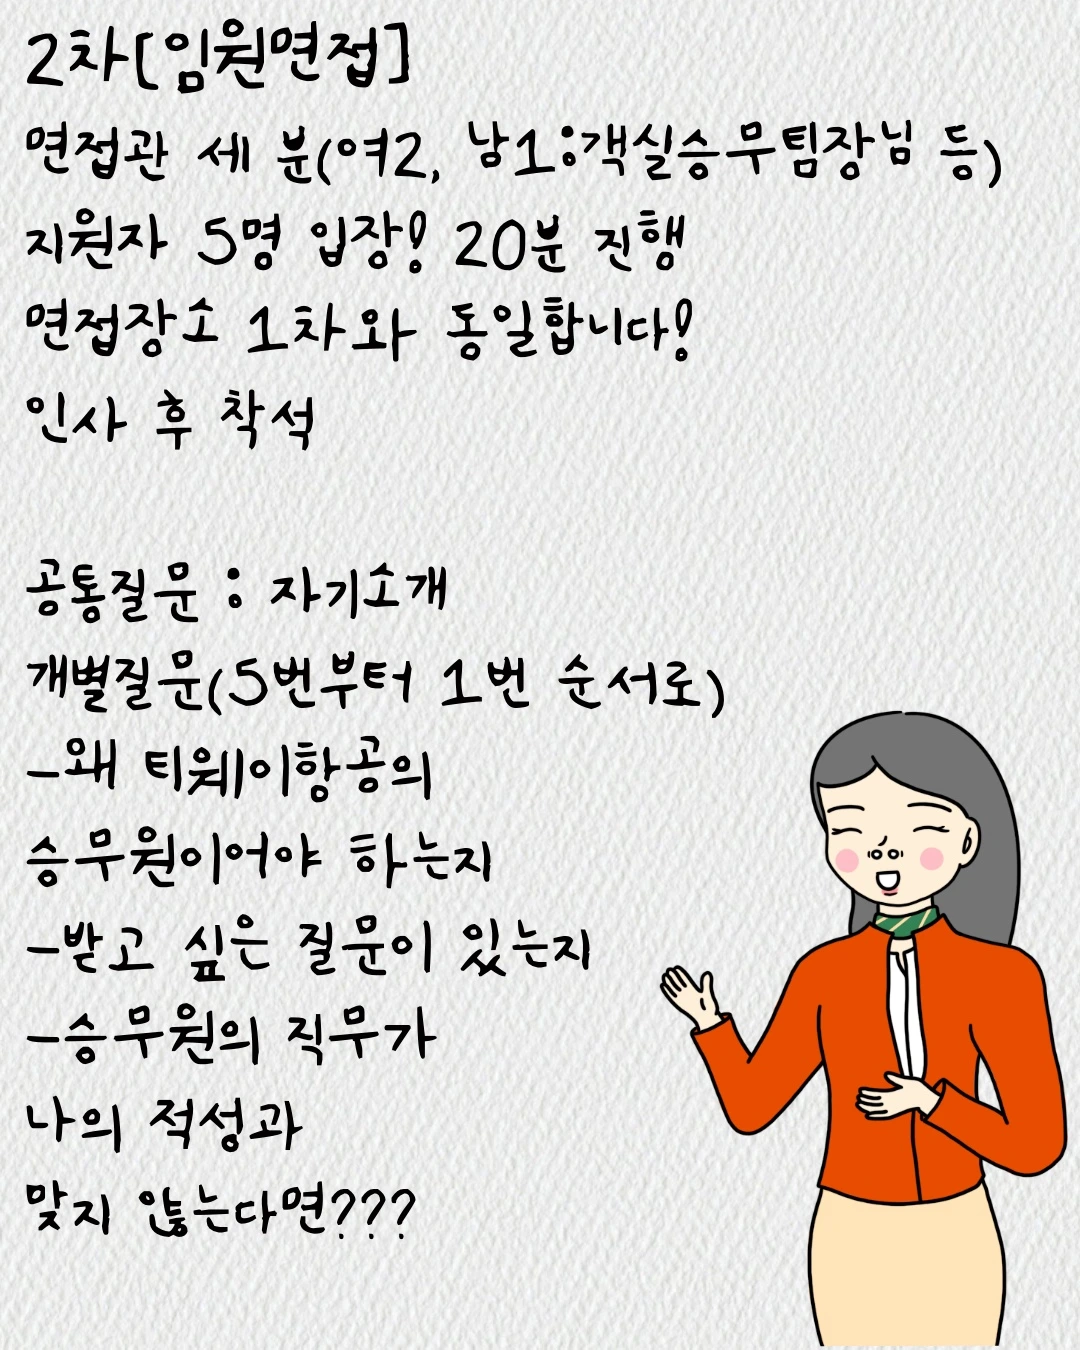 2차[임원면접]
면접관 세 분(여2, 남1:객실승무팀장님 등)
지원자 5명 입장! 20분 진행
면접장소 1차와 동일합니다!
인사 후 착석
공통질문 : 자기소개
개별질문(5번부터 1번 순서로)
-왜 티웨이항공의
승무원이어야 하는지
-받고 싶은 질문이 있는지
-승무원의 직무가
나의 적성과
맞지 않는다면???